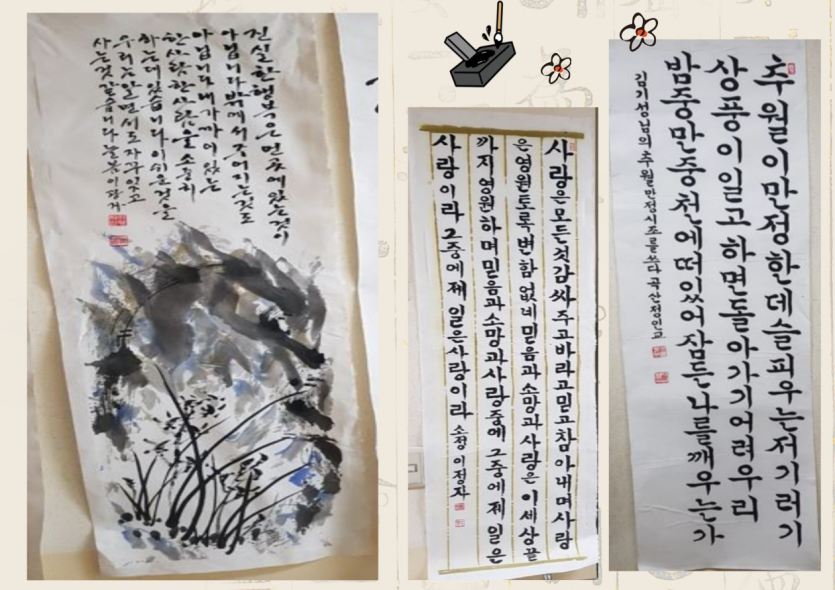 진실한 행복은 먼 곳에 있는 것이
아닙니다 밖에서 주어지는 것도
아닙니다 내가 가까이 있는
한 사람 한 사람을 소중히
하는데 있습니다 이 쉬운 것을
우리는 알면서도 자꾸 잊고
사는 것 같습니다
사랑은 모든것 감싸주고 바라고 믿고 참아내며 사랑
은 영원토록 변함 없네 믿음과 소망과 사랑은 이세상 끝
까지 영원하며 믿음과 소망과 사랑중에 그중에 제일은
사랑이라 그중에 제일은 사랑이라 소정 이정자
추월이 만정한데 슬피우는 저기러기
상풍이 일고하면 돌아가기 어려우리
밤중만 중천에 떠있어 잠든 나를 깨우는가
김기성님의 추월만정시조를 쓰다 곡산정인교